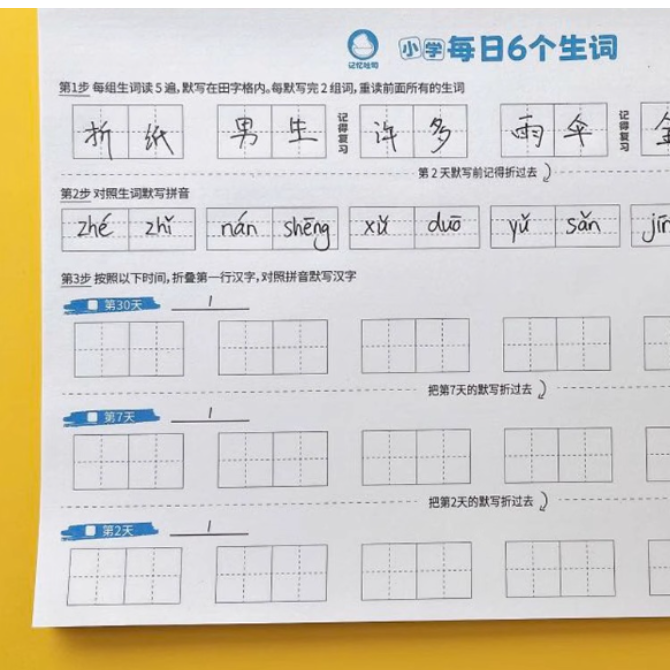 记忆吐司
小学每日6个生词
第1步 每组生词读5遍,默写在田字格内。每默写完2组词,重读前面所有的生词
折纸 男生 记得复习 许多 雨伞 记得复习
第2天默写前记得折过去
第2步 对照生词默写拼音
zhé zhǐ nán shēng xǔ duō yǔ sǎn jīn
第3步 按照以下时间,折叠第一行汉字,对照拼音默写汉字
第30天 1
把第7天的默写折过去
第7天 1
把第2天的默写折过去
第2天 1